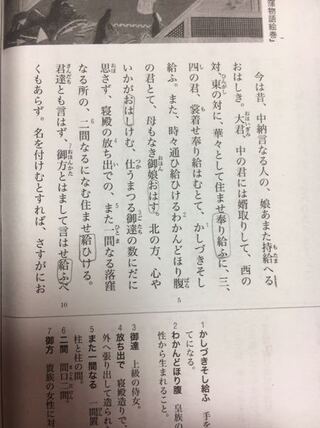 窪物語絵巻』
今は昔、中納言なる人の、娘あまた持給へる
おはしき。大君、中の君には婿取りして、西の
対、東の対に、華々として住ませ奉り給ふに、三、
四の君、裳着せ奉り給はむとて、かしづきそし
給ふ。また、時々通ひ給ひけるわかんどほり腹
の君とて、母もなき御娘おはす。北の方、心や
いかがおはしけむ、仕うまつる御達の数にだに
思さず、寝殿の放ち出での、また一間なる落窪
なる所の、二間なるになむ住ませ給ひける。
君達とも言はず、御方とはまして言はせ給ふべ
くもあらず。名を付けむとすれば、さすがにお
5
10
1 かしづきそし給ふ 手を
てになる。
2 わかんどほり腹 皇族の
性から生まれること。
3 御達 上級の侍女。
4 放ち出で 寝殿造りで、
外へ張り出して造られ
5 また一間なる 一間置
柱と柱の間。
6 二間 間口二間。
7 御方 貴族の女性に対